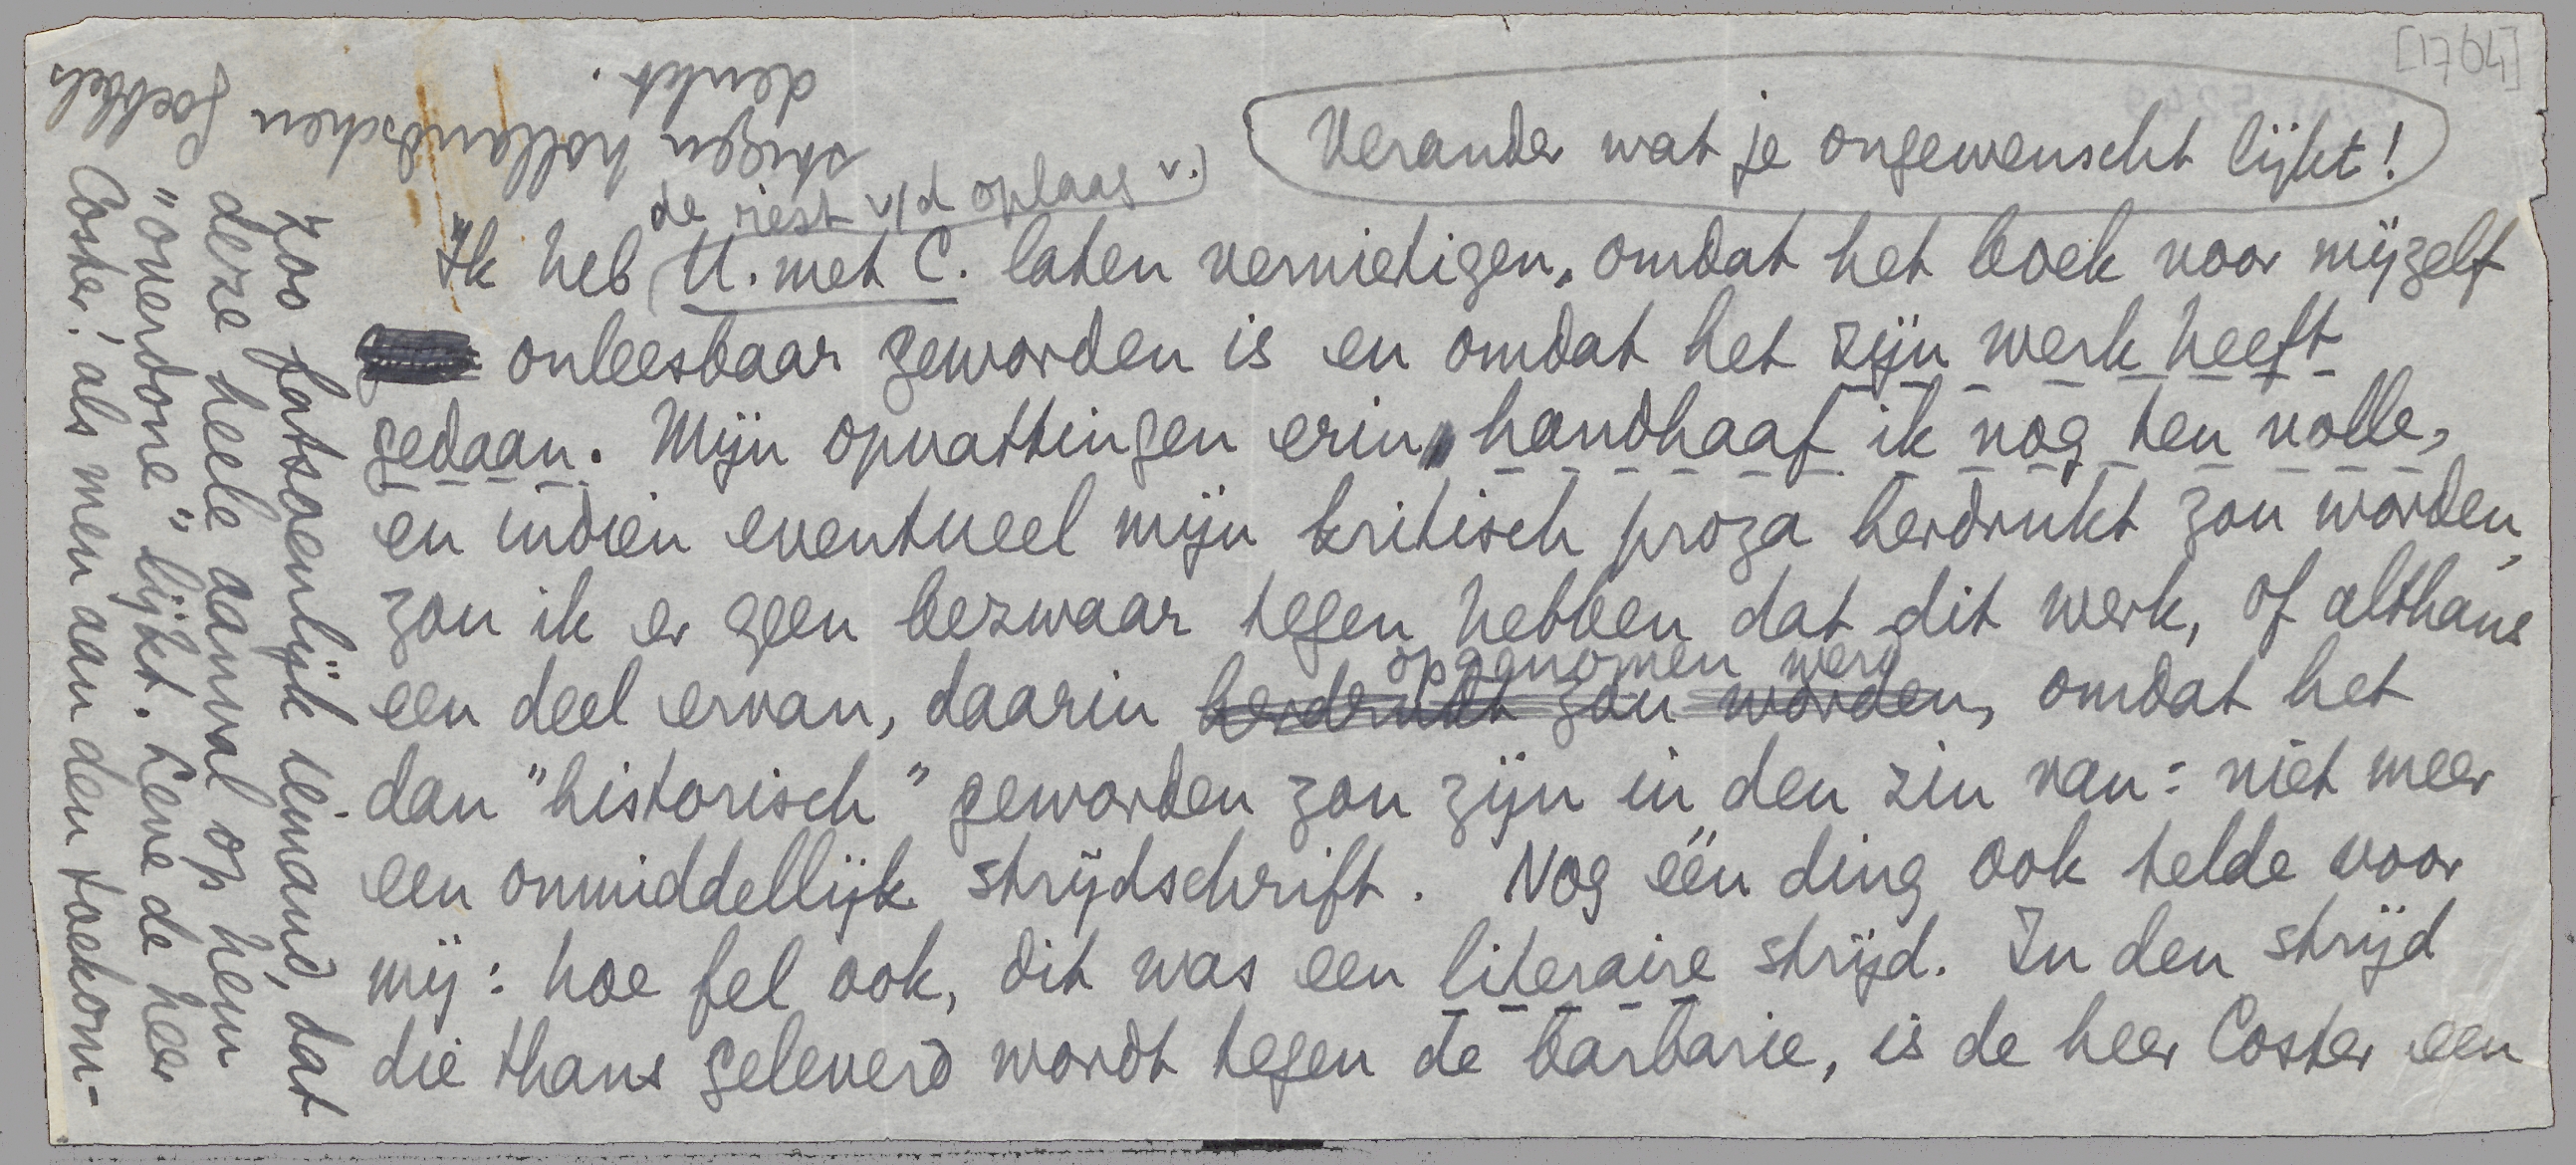 [1764]
Verander wat je ongewenscht lijkt!
de rest v/d oplaag v.)
"Ik heb U. met C. laten vernietigen, omdat het boek voor mijzelf
onleesbaar geworden is en omdat het zijn werk heeft
gedaan. Mijn opvattingen erin handhaaf ik nog ten volle,
en indien eventueel mijn kritisch proza herdrukt zou worden,
zou ik er geen bezwaar tegen hebben dat dit werk, of althans
opgenomen werd
een deel ervan, daarin herdrukt zou worden, omdat het
dan "historisch" geworden zou zijn in den zin van: niet meer
een onmiddellijk strijdschrift. Nog één ding ook telde voor
mij: hoe fel ook, dit was een literaire strijd. In den strijd
die thans geleverd wordt tegen de barbarie, is de heer Coster een
zoo fatsoenlijk iemand, dat
deze heele aanval op hem
"overdone" lijkt. Leve de heer
Coster! als men aan den toekom-
stigen hollandschen Goebbels
denkt.